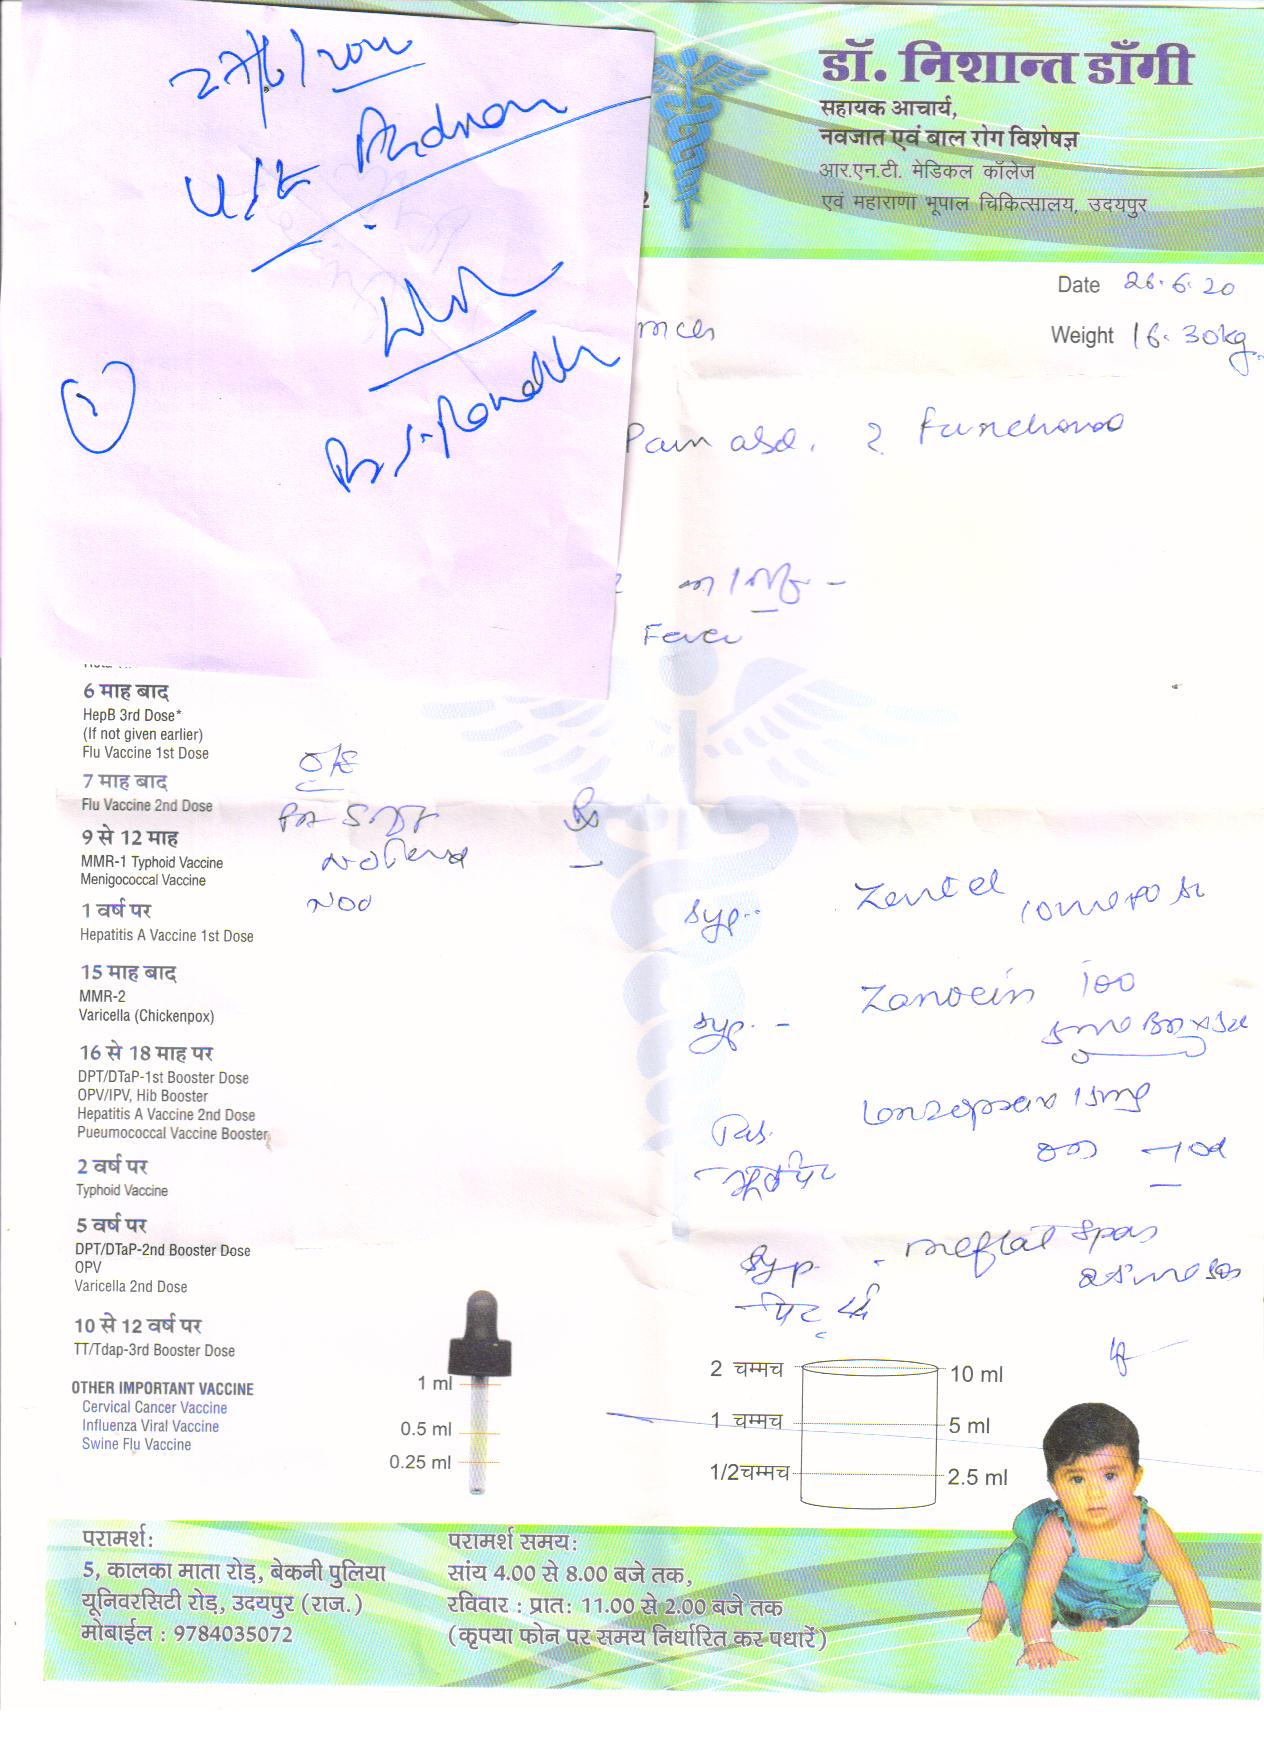 डॉ. निशान्त डाँगी
सहायक आचार्य,
नवजात एवं बाल रोग विशेषज्ञ
आर.एन.टी. मेडिकल कॉलेज
एवं महाराणा भूपाल चिकित्सालय, उदयपुर
Date 26.6.20
Weight 16.30kg
Pain abd. ? Functional
Fever
6 माह बाद
HepB 3rd Dose*
(If not given earlier)
Flu Vaccine 1st Dose
7 माह बाद
Flu Vaccine 2nd Dose
9 से 12 माह
MMR-1 Typhoid Vaccine
Menigococcal Vaccine
1 वर्ष पर
Hepatitis A Vaccine 1st Dose
15 माह बाद
MMR-2
Varicella (Chickenpox)
16 से 18 माह पर
DPT/DTaP-1st Booster Dose
OPV/IPV, Hib Booster
Hepatitis A Vaccine 2nd Dose
Pueumococcal Vaccine Booster
2 वर्ष पर
Typhoid Vaccine
5 वर्ष पर
DPT/DTaP-2nd Booster Dose
OPV
Varicella 2nd Dose
10 से 12 वर्ष पर
TT/Tdap-3rd Booster Dose
OTHER IMPORTANT VACCINE
Cervical Cancer Vaccine
Influenza Viral Vaccine
Swine Flu Vaccine
O/E
Rx
Syp. Zentel
Syp. - Zanocin 100
Syp. - Meftal Spas
1 ml
0.5 ml
0.25 ml
2 चम्मच 10 ml
1 चम्मच 5 ml
1/2चम्मच 2.5 ml
परामर्श:
5, कालका माता रोड़, बेकनी पुलिया
यूनिवरसिटी रोड़, उदयपुर (राज.)
मोबाईल : 9784035072
परामर्श समय:
सांय 4.00 से 8.00 बजे तक,
रविवार : प्रात: 11.00 से 2.00 बजे तक
(कृपया फोन पर समय निर्धारित कर पधारें)